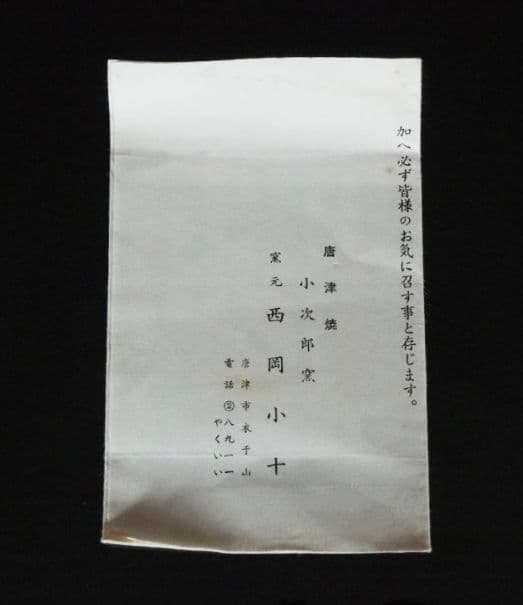 加へ必ず皆様のお気に召す事と存じます。
唐津焼
小次郎窯
窯元 西岡小十
唐津市衣干山
電話②八九一一
やくいい